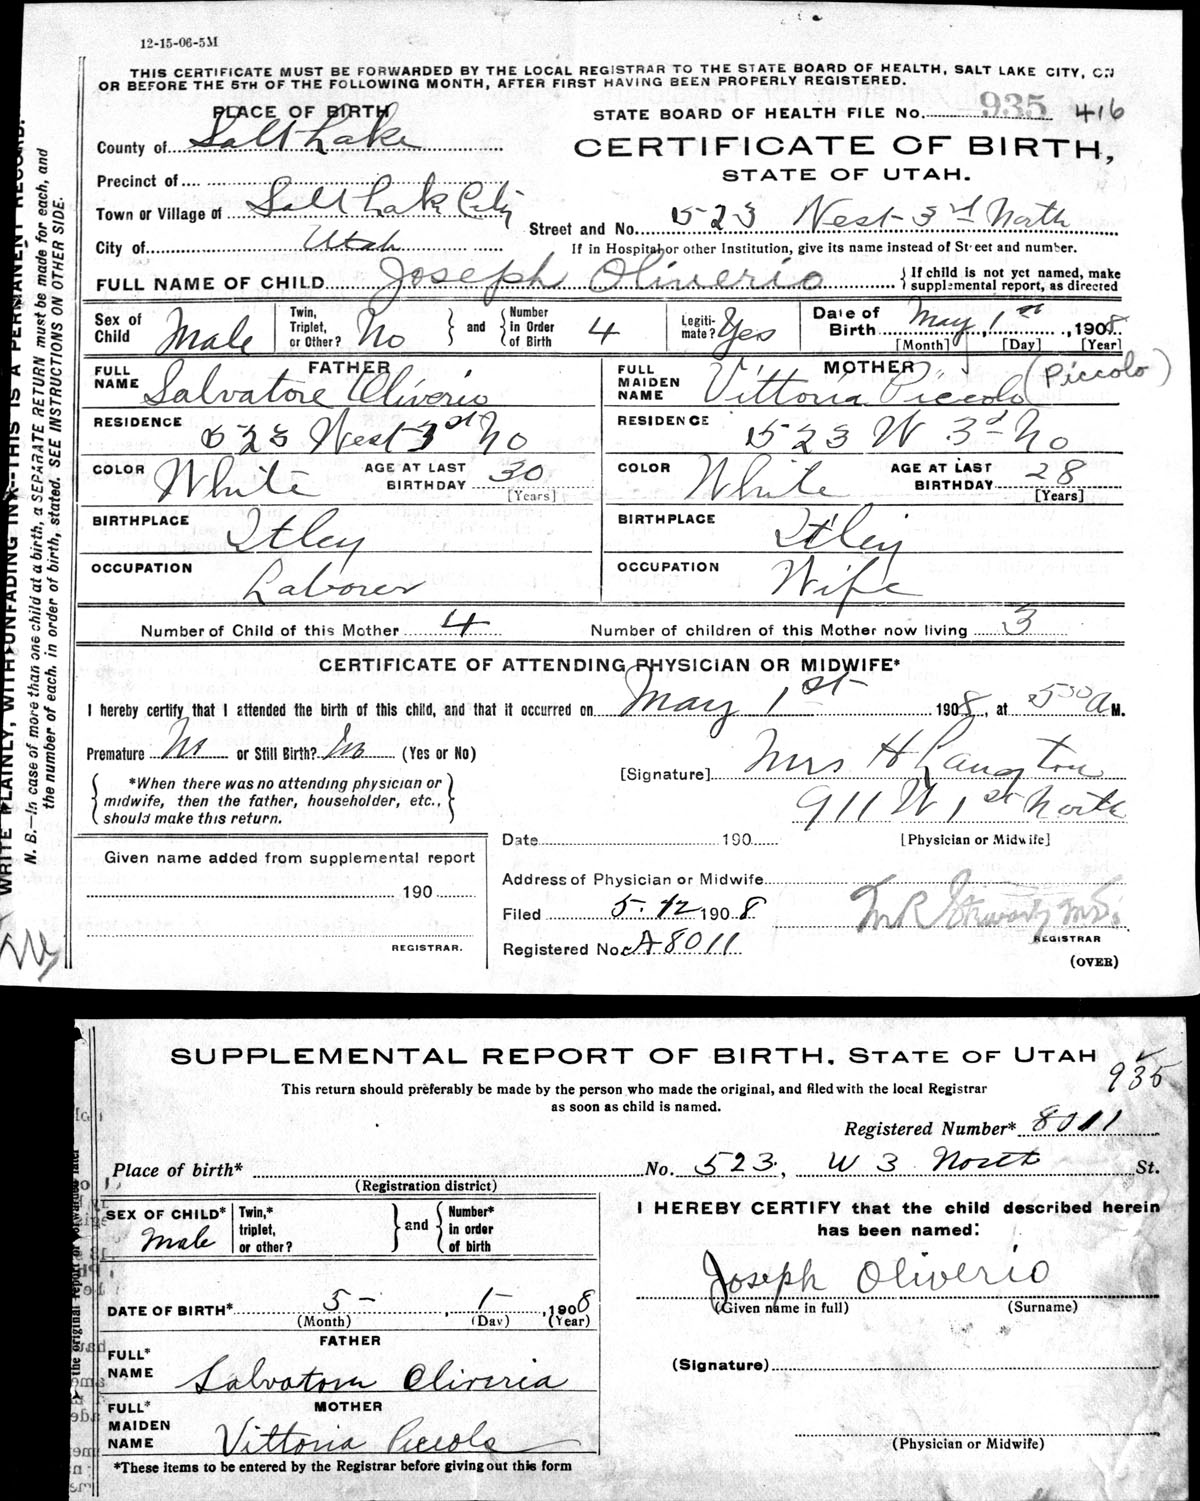 12-15-06-5M
THIS CERTIFICATE MUST BE FORWARDED BY THE LOCAL REGISTRAR TO THE STATE BOARD OF HEALTH, SALT LAKE CITY, ON
OR BEFORE THE 5TH OF THE FOLLOWING MONTH, AFTER FIRST HAVING BEEN PROPERLY REGISTERED.
WRITE PLAINLY, WITH UNFADING INK—THIS IS A PERMANENT RECORD.
N. B.—In case of more than one child at a birth, a SEPARATE RETURN must be made for each, and
the number of each, in order of birth, stated. SEE INSTRUCTIONS ON OTHER SIDE.
PLACE OF BIRTH
County of Salt Lake
Precinct of
Town or Village of Salt Lake City
City of Utah
STATE BOARD OF HEALTH FILE NO. 935 416
CERTIFICATE OF BIRTH,
STATE OF UTAH.
Street and No. 523 West 3rd North
If in Hospital or other Institution, give its name instead of Street and number.
FULL NAME OF CHILD Joseph Oliverio
If child is not yet named, make
supplemental report, as directed
Sex of Child Male
Twin, Triplet, or Other? No
and Number in Order of Birth 4
Legitimate? Yes
Date of Birth May 1st, 1908
[Month] [Day] [Year]
FATHER
FULL NAME Salvatore Oliverio
RESIDENCE 523 West 3rd No
COLOR White AGE AT LAST BIRTHDAY 30
[Years]
BIRTHPLACE Itley
OCCUPATION Laborer
MOTHER
FULL MAIDEN NAME Vittoria Piccolo (Piccolo)
RESIDENCE 523 W 3rd No
COLOR White AGE AT LAST BIRTHDAY 28
[Years]
BIRTHPLACE Itley
OCCUPATION Wife
Number of Child of this Mother 4 Number of children of this Mother now living 3
CERTIFICATE OF ATTENDING PHYSICIAN OR MIDWIFE*
I hereby certify that I attended the birth of this child, and that it occurred on May 1st 1908, at 5 30 A M.
Premature No or Still Birth? No (Yes or No)
*When there was no attending physician or
midwife, then the father, householder, etc.,
should make this return.
[Signature] Mrs H Langton
911 W 1st North
Date 190 [Physician or Midwife]
Given name added from supplemental report
190
REGISTRAR.
Address of Physician or Midwife
Filed 5-12 1908
REGISTRAR
Registered No. A8011
(OVER)
SUPPLEMENTAL REPORT OF BIRTH, STATE OF UTAH
935
This return should preferably be made by the person who made the original, and filed with the local Registrar
as soon as child is named.
Registered Number* 8011
Place of birth* No. 523, W 3 North St.
(Registration district)
SEX OF CHILD* Male
Twin,* triplet, or other?
and Number* in order of birth
DATE OF BIRTH* 5-, 1-, 1908
(Month) (Day) (Year)
FATHER
FULL* NAME Salvatora Cliveria
MOTHER
FULL* MAIDEN NAME Vittoria Piccola
*These items to be entered by the Registrar before giving out this form
I HEREBY CERTIFY that the child described herein
has been named:
Joseph Oliverio
(Given name in full) (Surname)
(Signature)
(Physician or Midwife)